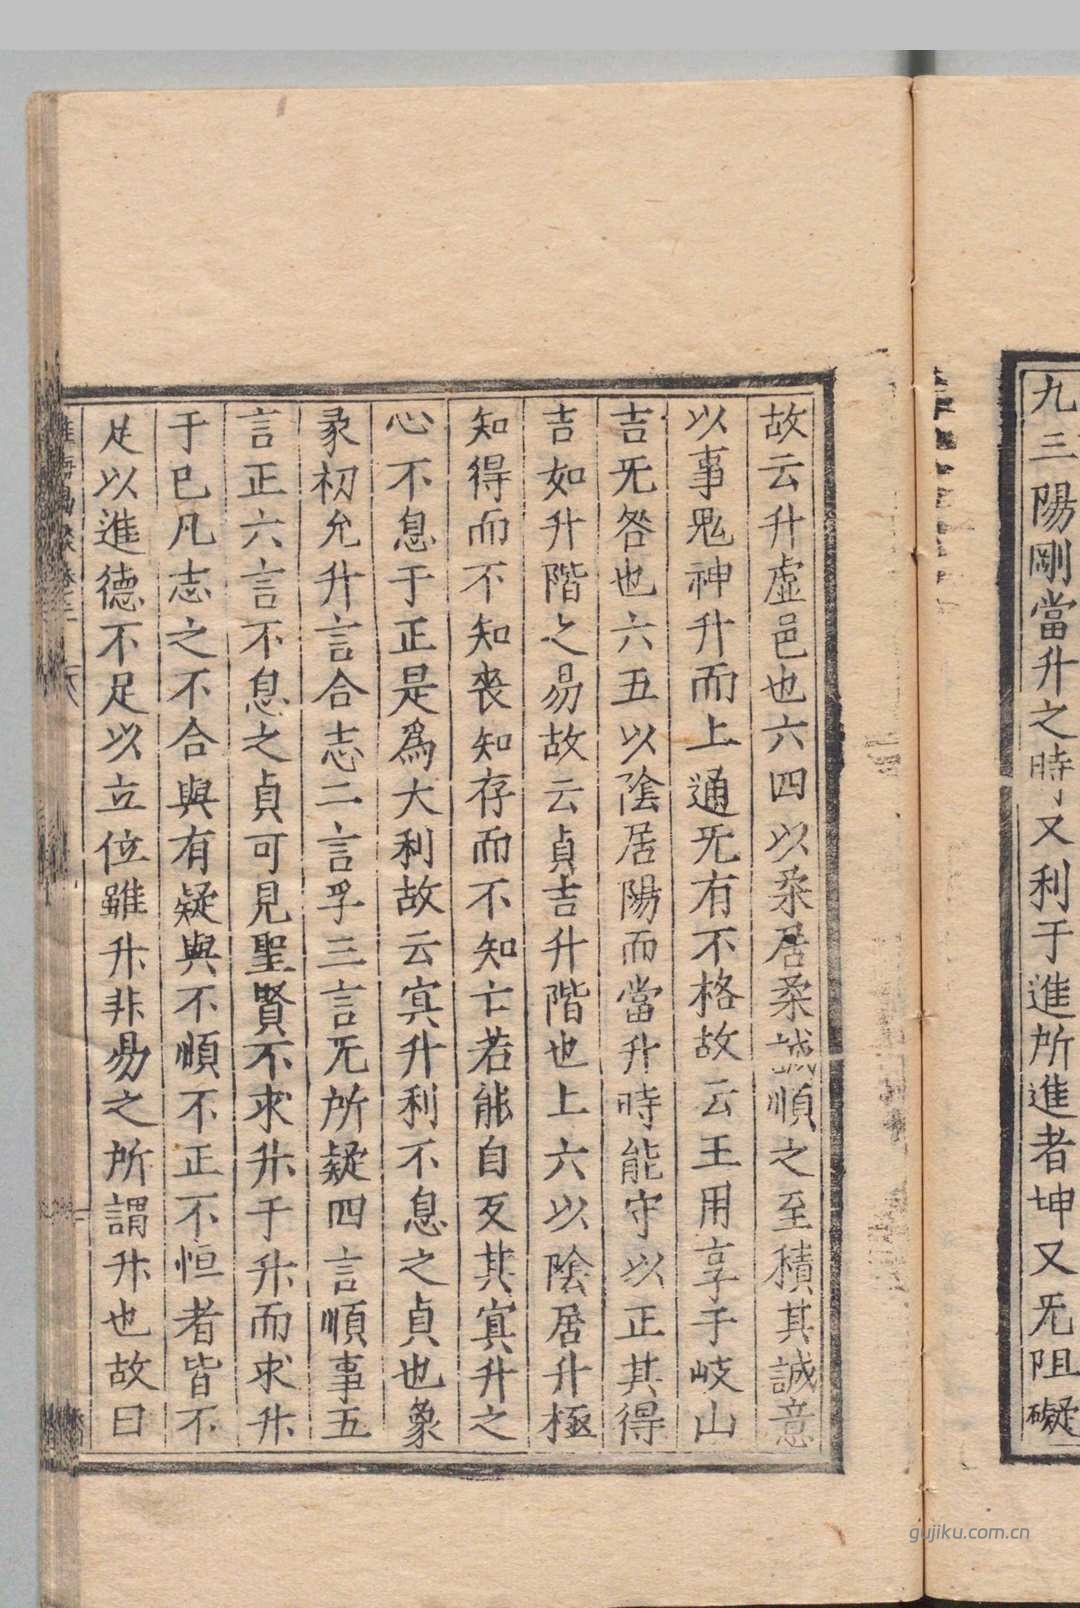 九三陽剛當升之時又利于進所進者坤又旡阻礙
故云升虛邑也六四以柔居柔誠順之至積其誠意
以事鬼神升而上通旡有不格故云王用享于岐山
吉旡咎也六五以陰居陽而當升時能守以正其得
吉如升階之易故云貞吉升階也上六以陰居升極
知得而不知喪知存而不知亡若能自反其冥升之
心不息于正是為大利故云冥升利不息之貞也象
彖初允升言合志二言孚三言旡所疑四言順事五
言正六言不息之貞可見聖賢不求升于升而求升
于己凡志之不合與有疑與不順不正不恒者皆不
足以進德不足以立位雖升非易之所謂升也故曰
gujiku.com.cn